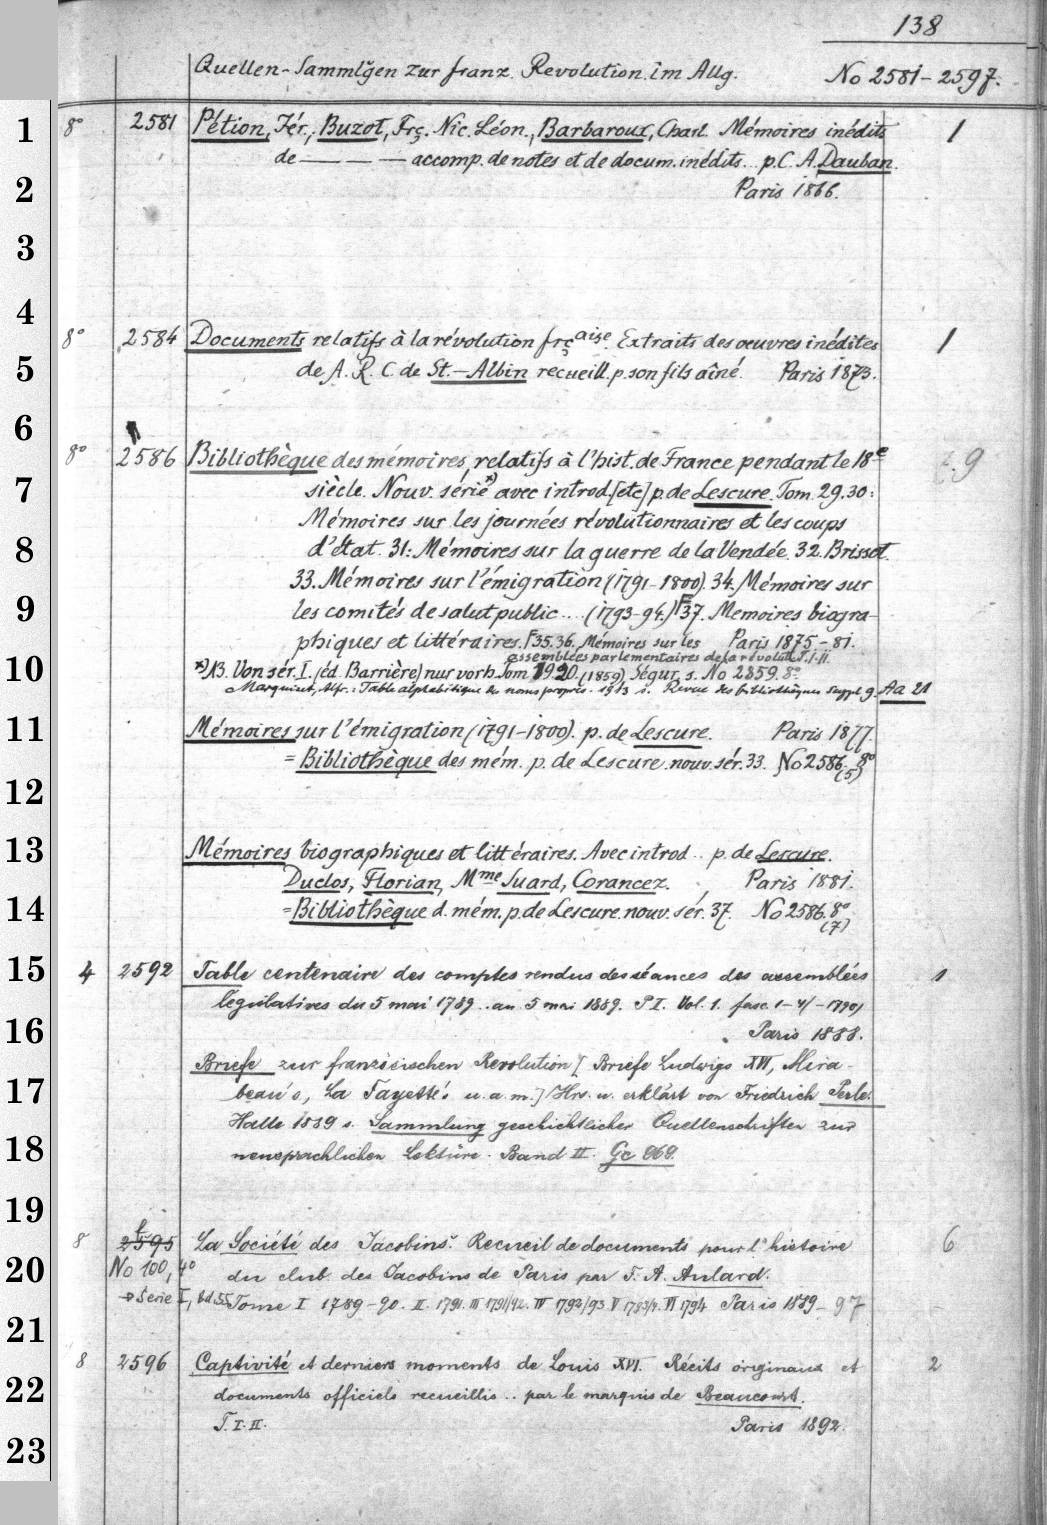 138
Quellen-Sammlgen zur franz. Revolution im Allg. No 2581-2597.
1 8° 2581 Pétion, Jér., Buzot, Frç. Nic. Léon., Barbaroux, Charl. Mémoires inédits 1
de — — — accomp. de notes et de docum. inédits... p. C. A. Dauban.
2 Paris 1866.
3
4
8° 2584 Documents relatifs à la révolution frçaise. Extraits des oeuvres inédites 1
5 de A. R. C. de St.-Albin recueill. p. son fils aîné. Paris 1873.
6
8° 2586 Bibliothèque des mémoires relatifs à l'hist. de France pendant le 18e 9
7 siècle. Nouv. série*) avec introd. [etc] p. de Lescure. Tom. 29.30:
Mémoires sur les journées révolutionnaires et les coups
8 d'état. 31: Mémoires sur la guerre de la Vendée. 32. Brissot.
33. Mémoires sur l'émigration (1791-1800). 34. Mémoires sur
9 les comités de salut public... (1793-94.) 37. Memoires biogra-
phiques et littéraires. 35.36. Mémoires sur les Paris 1875-81.
assemblées parlementaires de la révolut. T. I-II.
10 *) 13. Von sér. I. (éd. Barrière) nur vorh. Tom 19.20. (1859) Ségur, s. No 2859. 8°
Marquiset, Alf.: Table alphabétique des noms propres. 1913 i. Revue des bibliothèques Suppl 9. Aa 21
11 Mémoires sur l'émigration (1791-1800). p. de Lescure. Paris 1877.
= Bibliothèque des mém. p. de Lescure. nouv. sér. 33. No 2586. 8°
(5)
12
13 Mémoires biographiques et littéraires. Avec introd... p. de Lescure.
Duclos, Florian, Mme Suard, Corancez. Paris 1881.
14 = Bibliothèque d. mém. p. de Lescure. nouv. sér. 37. No 2586. 8°
(7)
15 4 2592 Table centenaire des comptes rendus des séances des assemblées 1
législatives du 5 mai 1789.. au 5 mai 1889. P I. Vol. 1. fasc. 1-4/-1790/
16 Paris 1888.
Briefe zur französischen Revolution [Briefe Ludwigs XVI, Mira-
17 beau's, La Fayette's u.a.m.] Hrs. u. erklärt von Friedrich Perle.
Halle 1889 s. Sammlung geschichtlicher Quellenschriften zur
18 neusprachlichen Lektüre. Band III. Gc 868.
19
8 2595 La Société des Jacobins. Recueil de documents pour l'histoire 6
20 No 100, 4° du club des Jacobins de Paris par F. A. Aulard.
→ Serie I, bd. 55 Tome I 1789-90. II. 1791. III 1791/92. IV 1792/93 V 1793/4. VI 1794 Paris 1889-97
21
8 2596 Captivité et derniers moments de Louis XVI. Récits originaux et 2
22 documents officiels recueillis.. par le marquis de Beaucourt.
T. I. II. Paris 1892.
23